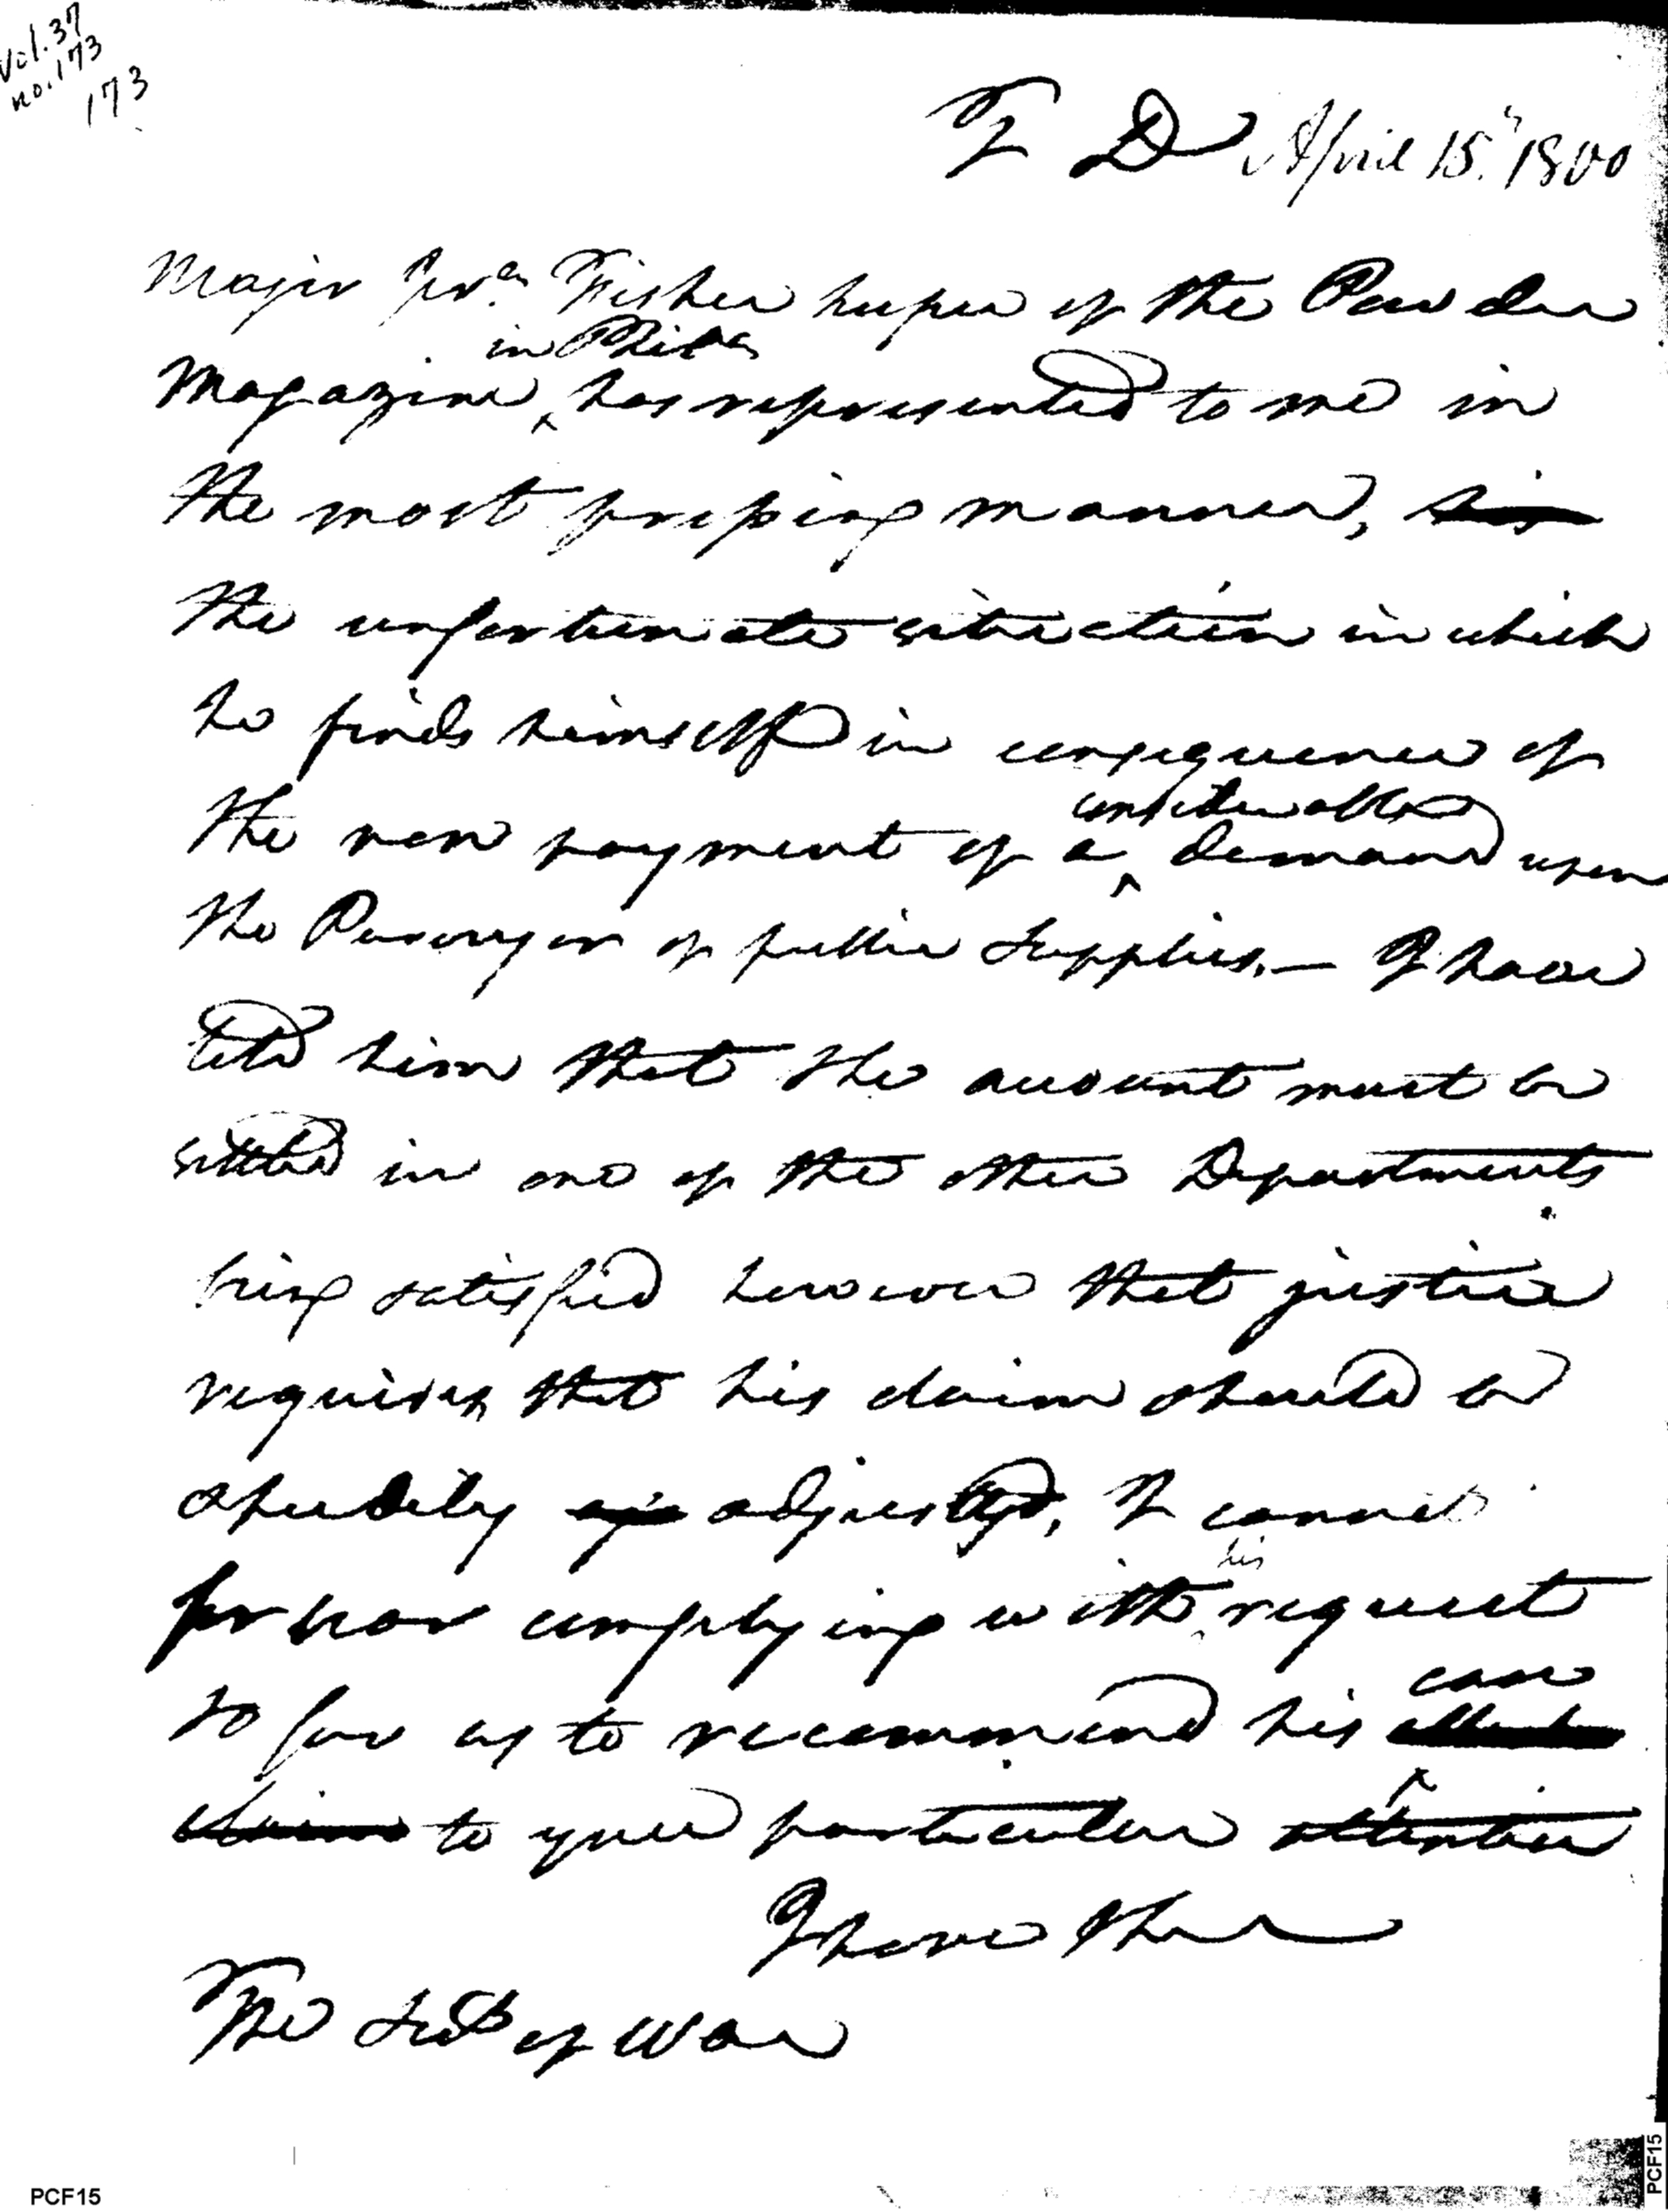 Vol. 37
no. 173
173
T D April 15th 1800
Major Jnoa Fisher keeper of the Powder
in Phila
Magazine, has represented to me in
the most pressing manner, his
the unfortunate situation in which
he finds himself in consequence of
considerable
the non payment of a demand upon
the Purveyor of public Supplies. — I have
told him that the account must be
settled in one of the other Departments
being satisfied however that justice
requires that his claim should be
speedily adjusted, I cannot
his
forbear complying with request
case
so far as to recommend his
claim to your particular attention
I have the
The Secy of War
PCF15
PCF15